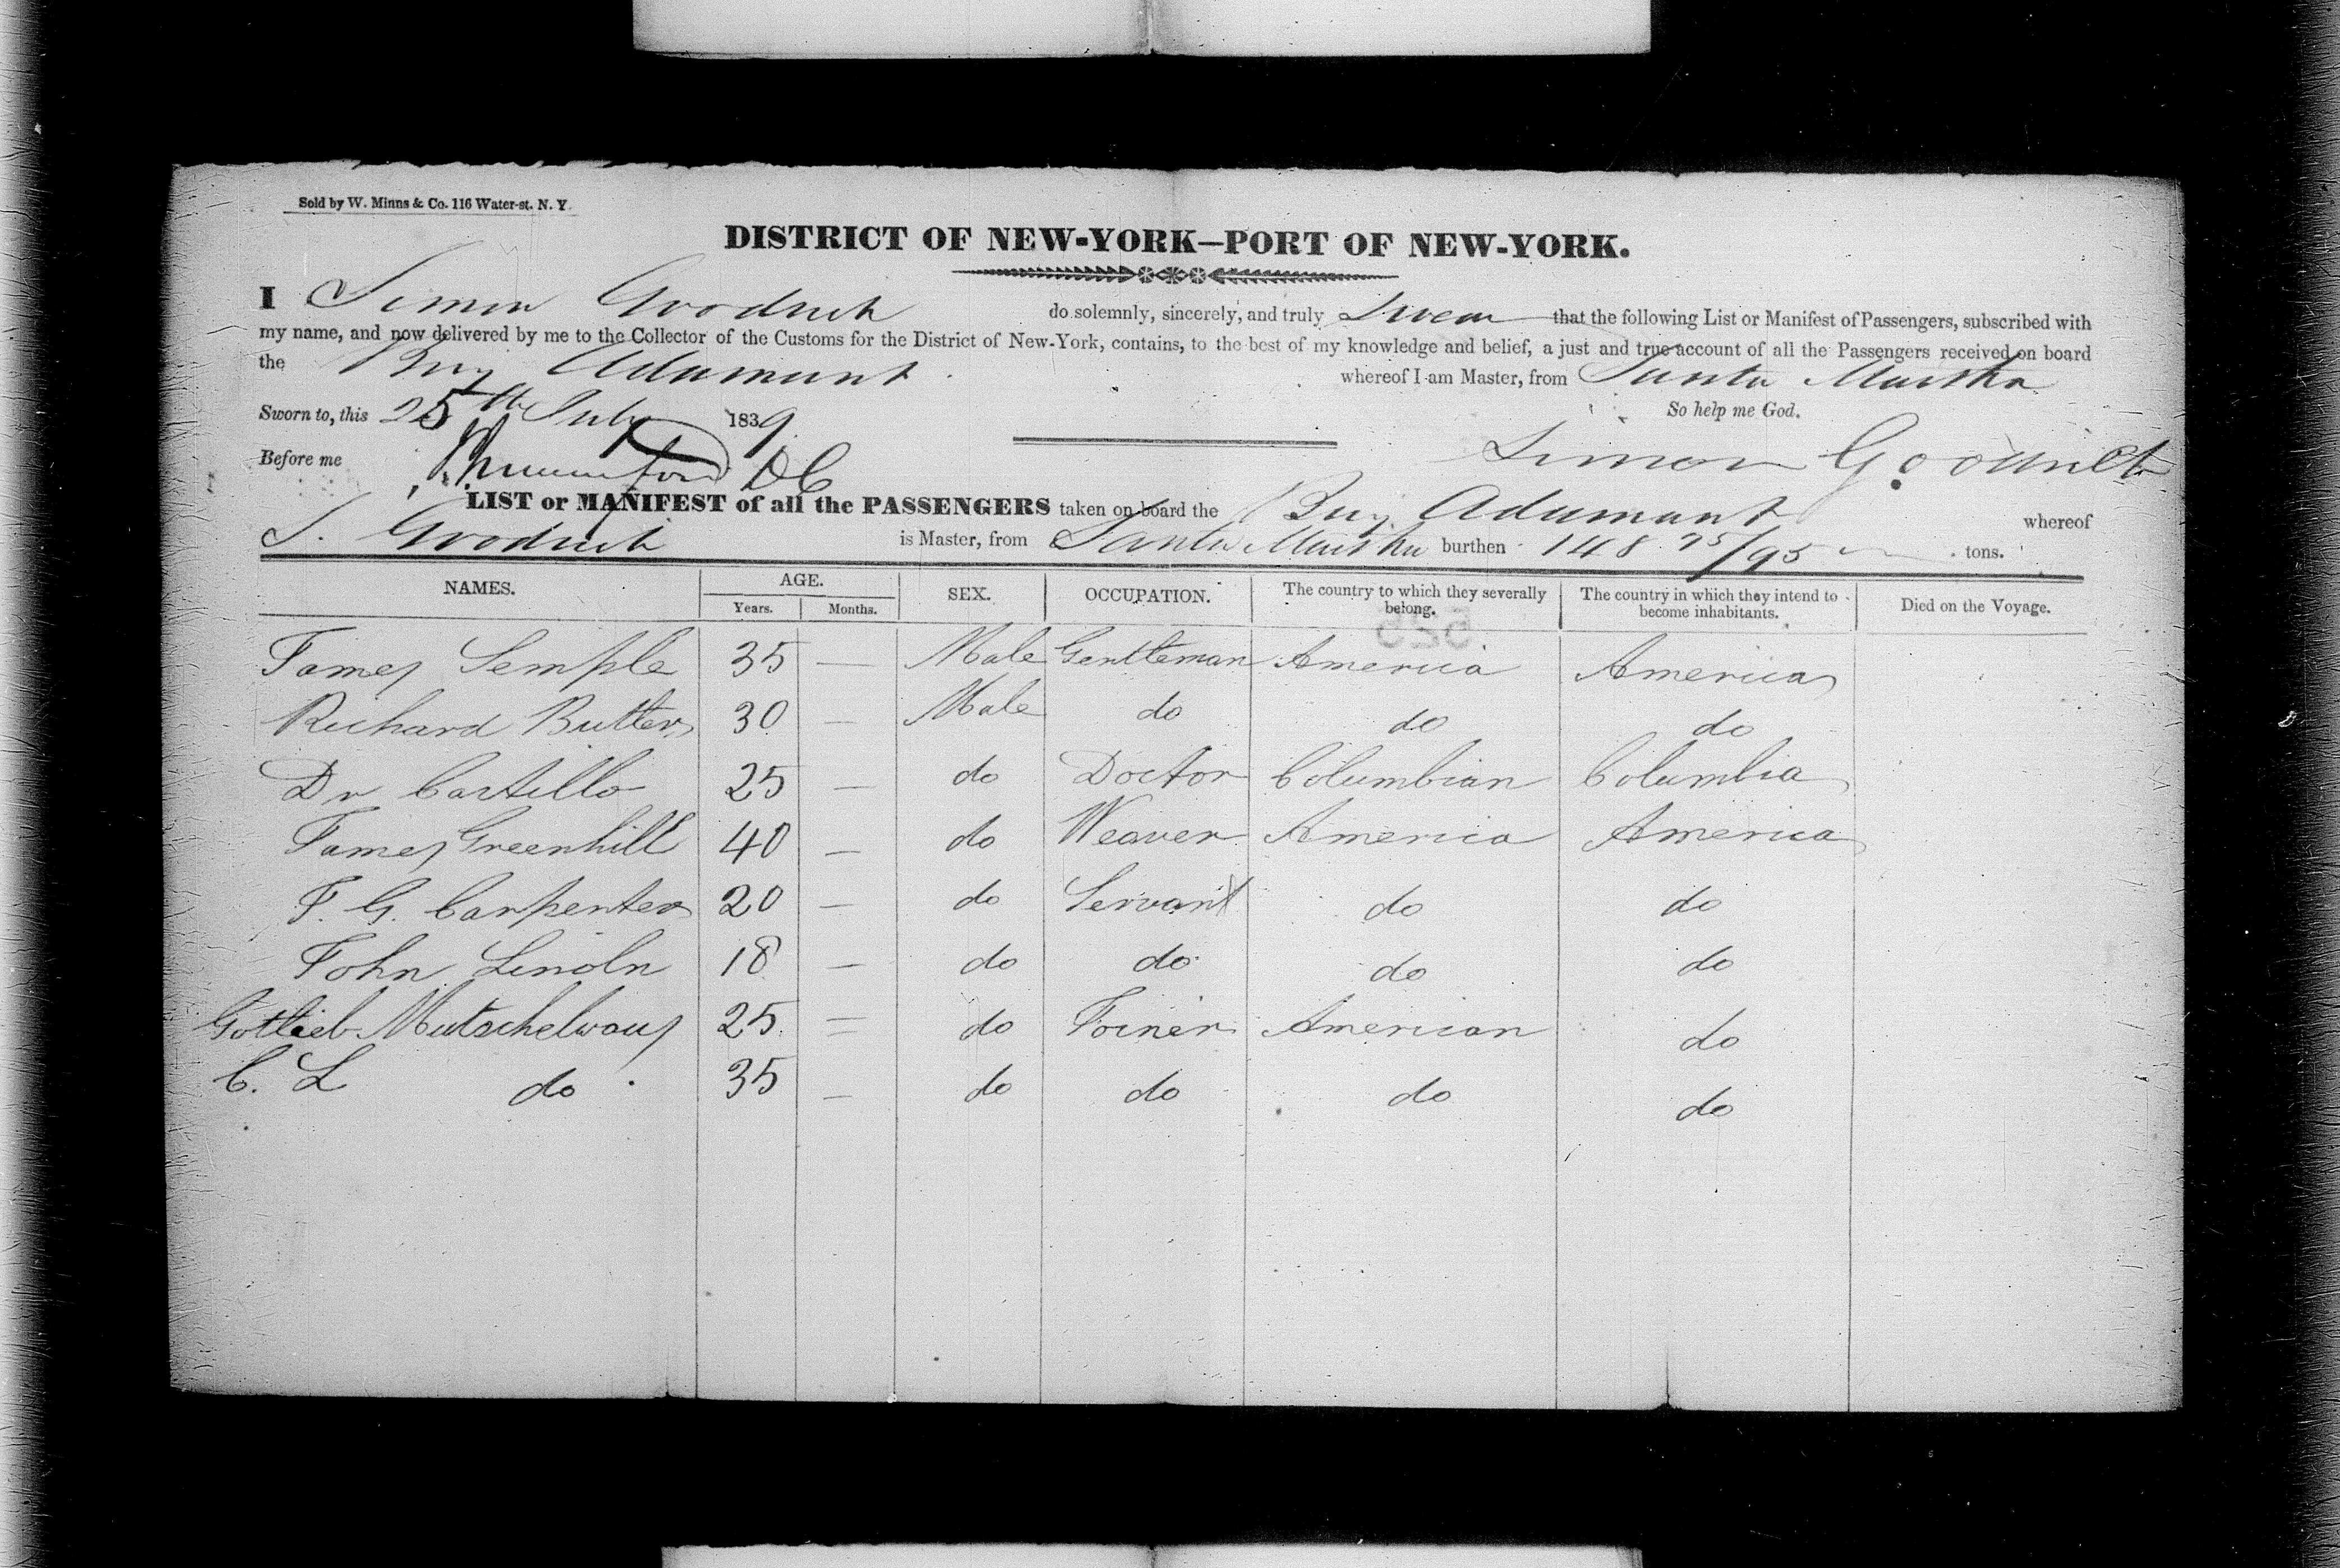 Sold by W. Minns & Co. 116 Water-st. N. Y.
DISTRICT OF NEW-YORK—PORT OF NEW-YORK.
I Simon Goodrich do solemnly, sincerely, and truly Swear that the following List or Manifest of Passengers, subscribed with
my name, and now delivered by me to the Collector of the Customs for the District of New-York, contains, to the best of my knowledge and belief, a just and true account of all the Passengers received on board
the Brig Adamant whereof I am Master, from Santa Martha
Sworn to, this 25th July 1839 So help me God.
Before me DC Simon Goodrich
LIST or MANIFEST of all the PASSENGERS taken on board the Brig Adamant whereof
S. Goodrich is Master, from Santa Martha burthen 148 75/95 tons.
NAMES. AGE. Years. Months. SEX. OCCUPATION. The country to which they severally belong. The country in which they intend to become inhabitants. Died on the Voyage.
James Semple 35 — Male Gentleman America America
Richard Butler 30 — Male do do do
Dr Castillo 25 — do Doctor Columbian Columbia
James Greenhill 40 — do Weaver America America
F. G. Carpenter 20 — do Servant do do
John Lincoln 18 — do do do do
Gottlieb 25 = do Joiner American do
C. L do 35 — do do do do